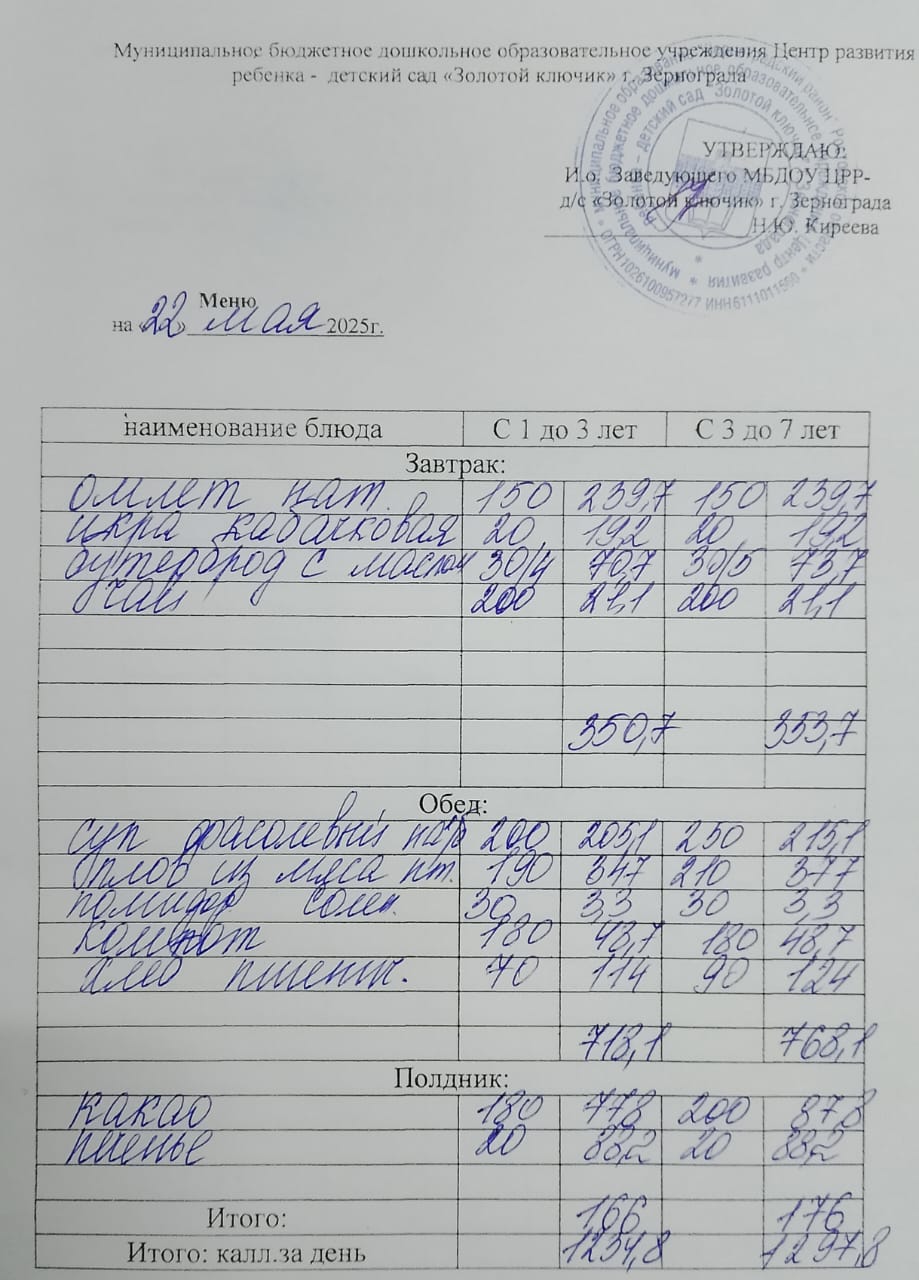 Муниципальное бюджетное дошкольное образовательное учреждения Центр развития
ребенка - детский сад «Золотой ключик» г. Зернограда
УТВЕРЖДАЮ:
И.о. Заведующего МБДОУ ЦРР-
д/с «Золотой ключик» г. Зернограда
Н.Ю. Киреева
ОГРН 1026100957277 ИНН 6111011560
Меню
на «22» мая 2025г.
наименование блюда С 1 до 3 лет С 3 до 7 лет
Завтрак:
омлет нат. 150 239,7 150 239,7
икра кабачковая 20 19,2 20 19,2
бутерброд с маслом 30/4 70,7 30/5 73,7
чай 200 21,1 200 21,1
350,7 353,7
Обед:
суп фасолевый 200 205,1 250 215,1
плов из мяса пт. 190 347 210 377
помидор солен. 30 3,3 30 3,3
компот 180 48,7 180 48,7
хлеб пшенич. 70 114 90 124
718,1 768,1
Полдник:
какао 180 77,8 200 87,8
печенье 20 88,2 20 88,2
Итого: 166 176
Итого: калл.за день 1234,8 1297,8